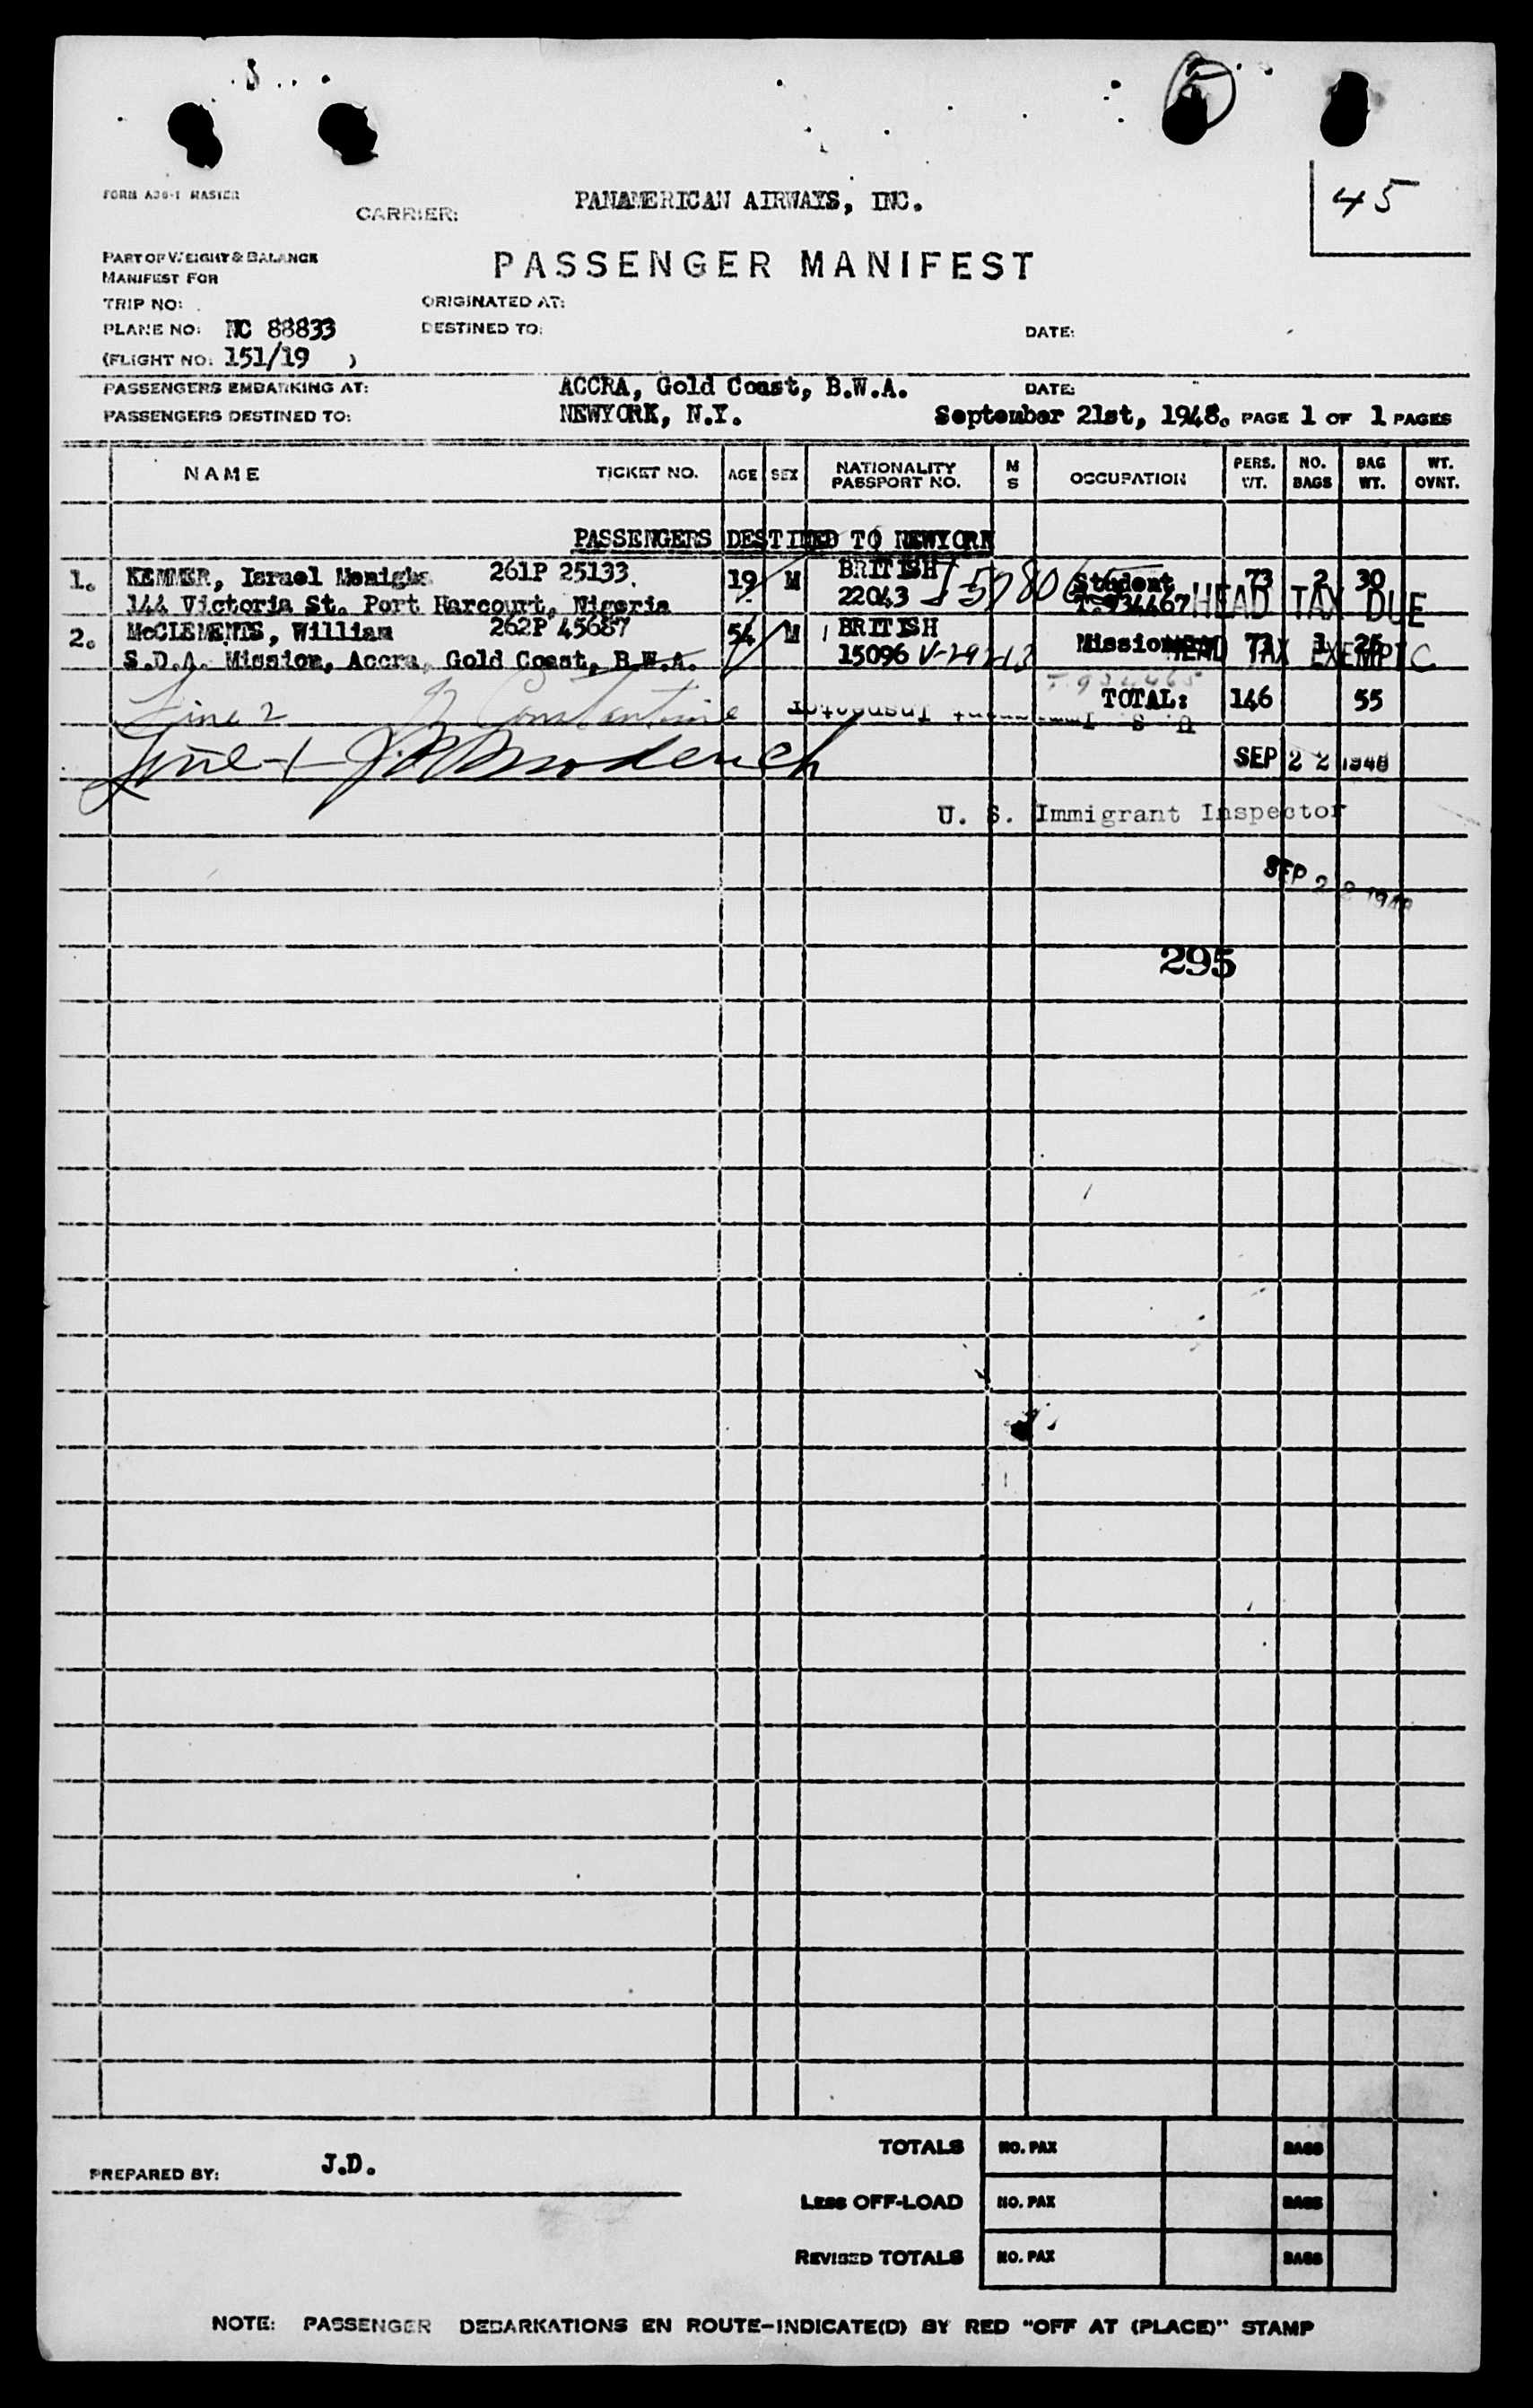 5
FORM A36-1 MASTER
45
CARRIER: PANAMERICAN AIRWAYS, INC.
PART OF WEIGHT & BALANCE
MANIFEST FOR
PASSENGER MANIFEST
TRIP NO:
ORIGINATED AT:
PLANE NO: NC 88833
DESTINED TO:
DATE:
(FLIGHT NO: 151/19 )
PASSENGERS EMBARKING AT: ACCRA, Gold Coast, B.W.A. DATE:
PASSENGERS DESTINED TO: NEWYORK, N.Y. September 21st, 1948. PAGE 1 OF 1 PAGES
NAME TICKET NO. AGE SEX NATIONALITY PASSPORT NO. M S OCCUPATION PERS. WT. NO. BAGS BAG WT. WT. OVNT.
PASSENGERS DESTINED TO NEWYORK
1. KEMMER, Israel 261P 25133. 19 M BRITISH Student 73 2 30
144 Victoria St. Port Harcourt, Nigeria 22043 T-934467 HEAD TAX DUE
2. McCLEMENTS, William 262P 45687 54 M BRITISH Missionary 73 1 25
S.D.A. Mission, Accra, Gold Coast, B.W.A. 15096 V-29213 HEAD TAX EXEMPT C
T-934465
Line 2 Constantine TOTAL: 146 55
U. S. Immigrant Inspector
Line 1 Broderick SEP 22 1948
U. S. Immigrant Inspector
SEP 22 1948
295
TOTALS NO. PAX BAGS
PREPARED BY: J.D.
LESS OFF-LOAD NO. PAX BAGS
REVISED TOTALS NO. PAX BAGS
NOTE: PASSENGER DEBARKATIONS EN ROUTE-INDICATE(D) BY RED "OFF AT (PLACE)" STAMP